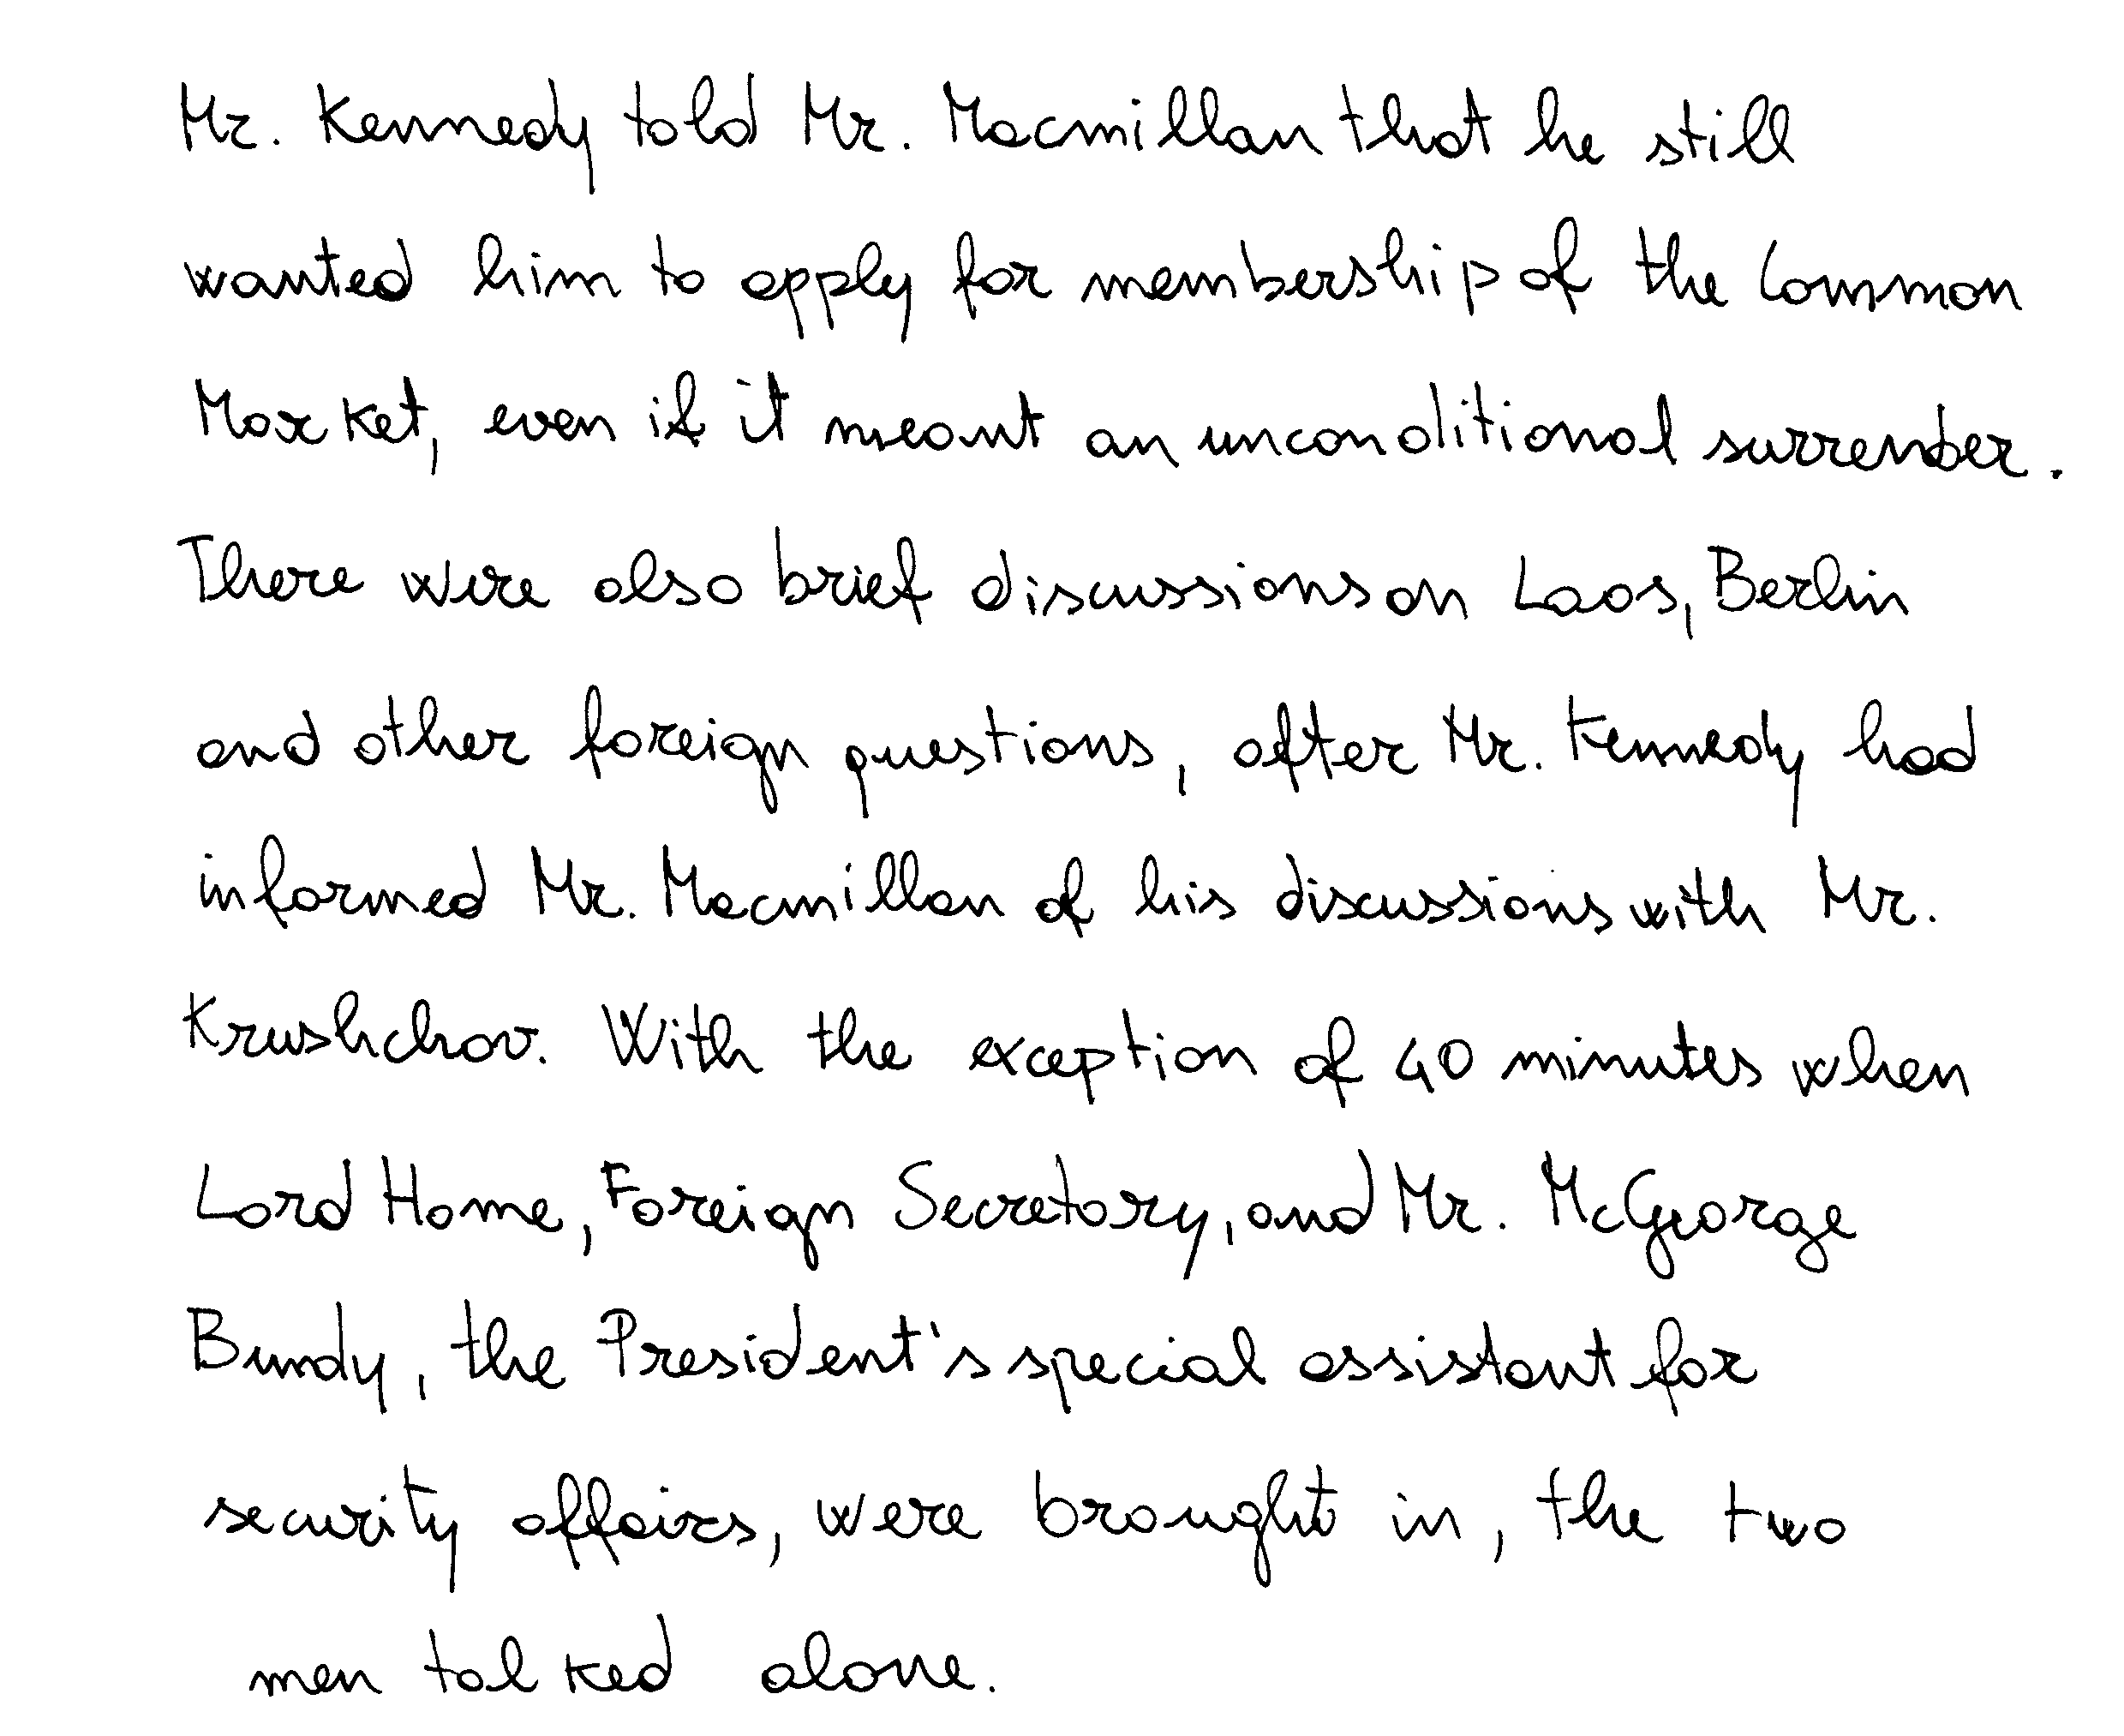 Mr. Kennedy told Mr. Macmillan that he still
wanted him to apply for membership of the Common
Market, even if it meant an unconditional surrender.
There were also brief discussions on Laos, Berlin
and other foreign questions, after Mr. Kennedy had
informed Mr. Macmillan of his discussions with Mr.
Krushchov. With the exception of 40 minutes when
Lord Home, Foreign Secretary, and Mr. McGeorge
Bundy, the President's special assistant for
security affairs, were brought in, the two
men talked alone.